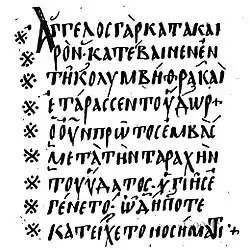 ※ ΑΓΓΕΛΟϹΓΑΡΚΑΤΑΚΑΙ
※ ΡΟΝ·ΚΑΤΕΒΑΙΝΕΝΕΝ
※ ΤΗΚΟΛΥΜΒΗΘΡΑΚΑΙ
※ ΕΤΑΡΑϹϹΕΝΤΟΥΔΩΡ+
※ ΟΟΥΝΠΡΩΤΟϹΕΜΒΑϹ
※ ΜΕΤΑΤΗΝΤΑΡΑΧΗΝ
※ ΤΟΥΥΔΑΤΟϹ·ΥΓΙΗϹΕ
※ ΓΕΝΕΤΟ·ΩΔΗΠΟΤΕ
※ ΚΑΤΕΙΧΕΤΟΝΟϹΗΜΑΤΙ+